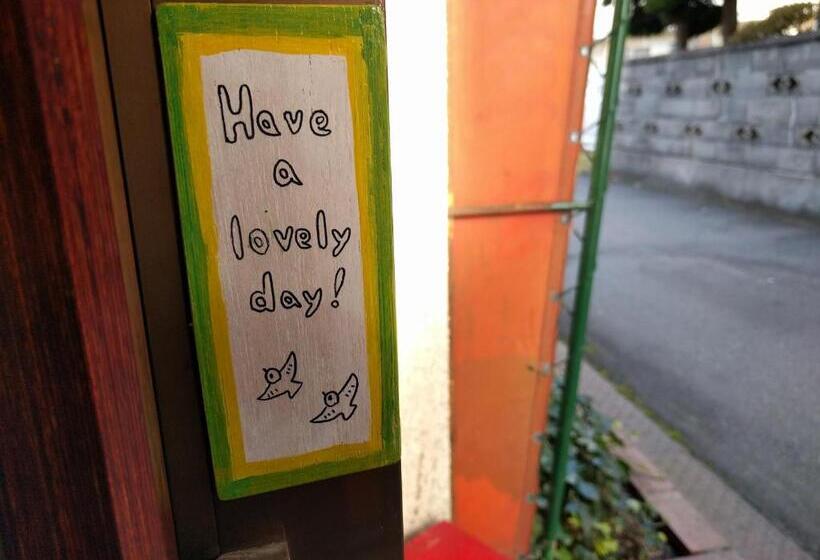 Have
a
lovely
day!